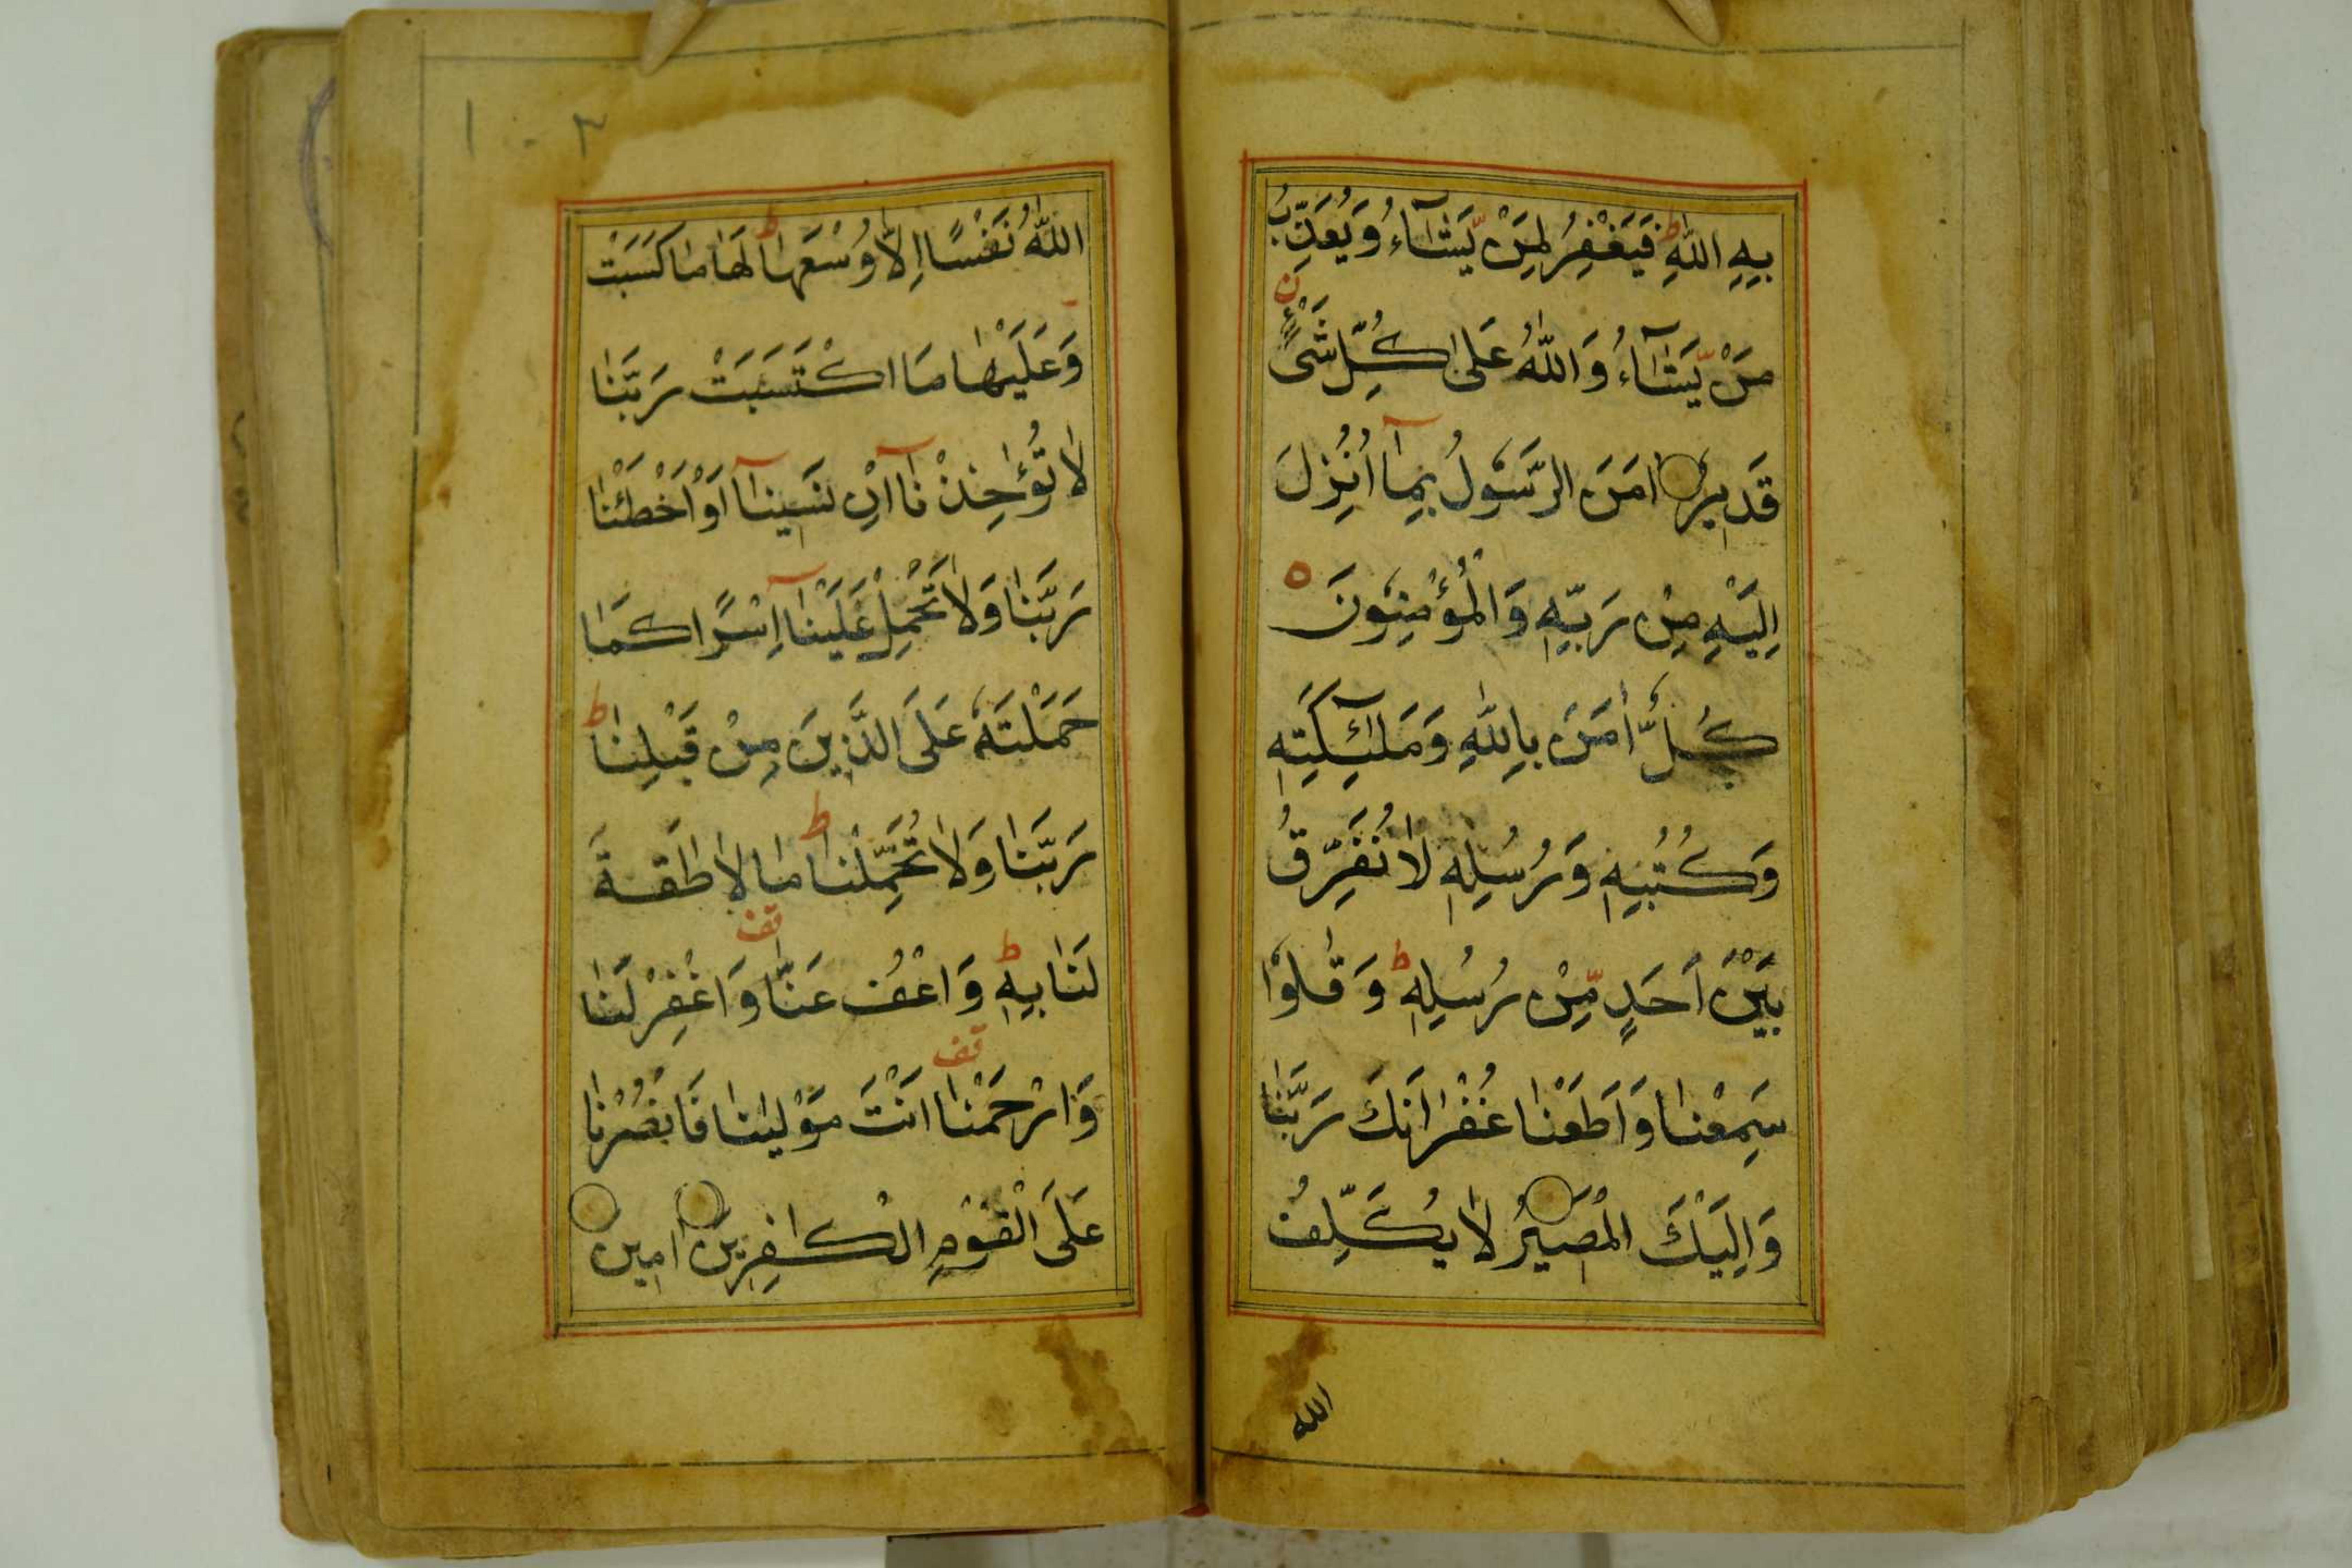 بِهِ اللّٰهِ ط فَيَغْفِرُ لِمَنْ يَّشَآءُ وَيُعَذِّبُ
مَنْ يَّشَآءُ وَاللّٰهُ عَلٰى كُلِّ شَىْءٍ
قَدِيرٌ اٰمَنَ الرَّسُولُ بِمَآ اُنْزِلَ
اِلَيْهِ مِنْ رَبِّهٖ وَالْمُؤْمِنُونَ ه
كُلٌّ اٰمَنَ بِاللّٰهِ وَمَلٰٓئِكَتِهٖ
وَكُتُبِهٖ وَرُسُلِهٖ لَا نُفَرِّقُ
بَيْنَ اَحَدٍ مِّنْ رُسُلِهٖ ط وَقَالُوْا
سَمِعْنَا وَاَطَعْنَا غُفْرَانَكَ رَبَّنَا
وَاِلَيْكَ الْمَصِيْرُ لَا يُكَلِّفُ
الله
١٠٢
اللّٰهُ نَفْسًا اِلَّا وُسْعَهَا ط لَهَا مَا كَسَبَتْ
وَعَلَيْهَا مَا اكْتَسَبَتْ رَبَّنَا
لَا تُؤَاخِذْنَآ اِنْ نَسِينَآ اَوْ اَخْطَئْنَا
رَبَّنَا وَلَا تَحْمِلْ عَلَيْنَآ اِسْرًا كَمَا
حَمَلْتَهٗ عَلَى الَّذِينَ مِنْ قَبْلِنَا ط
رَبَّنَا وَلَا تُحَمِّلْنَا ط مَا لَا طَقَةَ
لَنَا بِهٖ ط وَاعْفُ عَنَّا قف وَاغْفِرْلَنَا
وَارْحَمْنَا قف اَنْتَ مَوْلٰينَا فَانْصُرْنَا
عَلَى الْقَوْمِ الْكَافِرِينَ اٰمِين